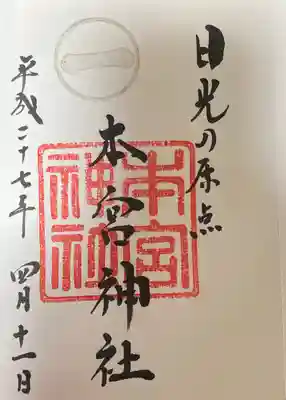 日光の原点
本宮神社
本宮神社
平成二十七年 四月十一日